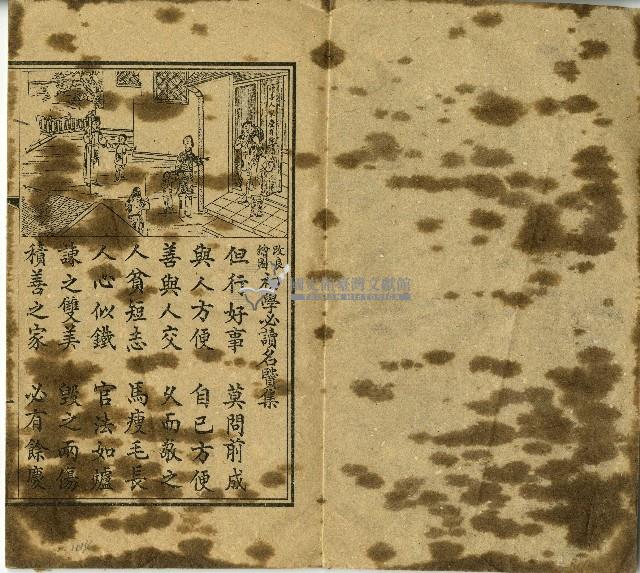 改良
繪圖
初學必讀名賢集
但行好事　莫問前成
與人方便　自己方便
善與人交　久而敬之
人貧短志　馬瘦毛長
人心似鐵　官法如爐
諫之雙美　毀之兩傷
積善之家　必有餘慶
國史館臺灣文獻館
TAIWAN HISTORICA